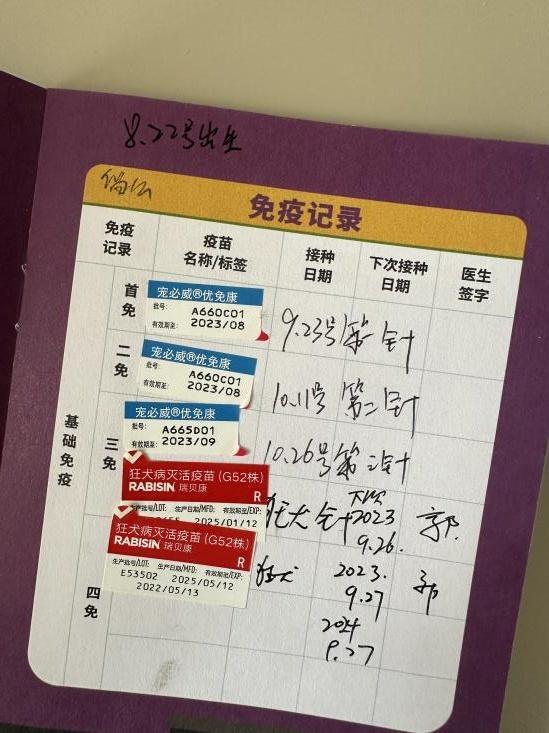 8.22号出生
免疫记录
免疫记录 疫苗名称/标签 接种日期 下次接种日期 医生签字
基础免疫
首免
宠必威®优免康
批号: A660C01
有效期至: 2023/08
9.23号第一针
二免
宠必威®优免康
批号: A660C01
有效期至: 2023/08
10.11号 第二针
三免
宠必威®优免康
批号: A665D01
有效期至: 2023/09
10.26号第三针
狂犬病灭活疫苗(G52株)
RABISIN 瑞贝康
R
生产批号/LOT: 生产日期/MFD: 有效期至/EXP:
2025/01/12
狂犬针 下次 2023 9.26. 郭
四免
狂犬病灭活疫苗(G52株)
RABISIN 瑞贝康
R
生产批号/LOT: 生产日期/MFD: 有效期至/EXP:
E53502 2025/05/12
2022/05/13
狂犬 2023. 9.27 郭
2024
9.27